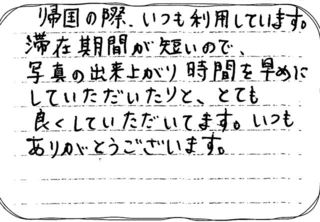 帰国の際、いつも利用しています。
滞在期間が短いので、
写真の出来上がり時間を早めに
していただいたりと、とても
良くしていただいてます。いつも
ありがとうございます。